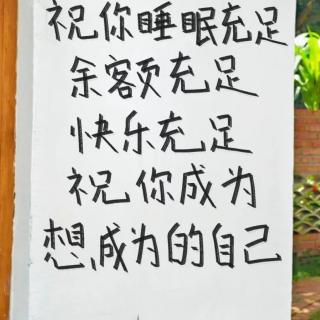 祝你睡眠充足
余额充足
快乐充足
祝你成为
想成为的自己